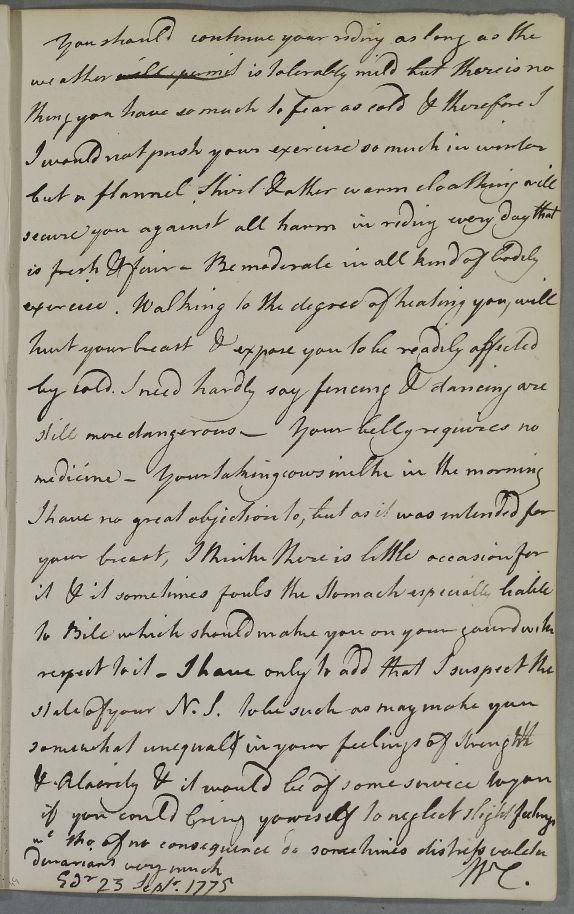 You should continue your riding as long as the
weather will permit is tolerably mild but there is no
thing you have so much to fear as cold & therefore I
I would not push your exercise so much in winter
but a flannel Shirt & other warm cloathing will
secure you against all harm in riding every day that
is fresh & fair - Be moderate in all kind of bodily
exercise. Walking to the degree of heating you, will
hurt your breast & expose you to be readily affected
by cold. I need hardly say fencing & dancing are
still more dangerous - Your belly requires no
medicine - Your taking cows milk in the morning
I have no great objection to, but as it was intended for
your breast, I think there is little occasion for
it & it sometimes fouls the Stomach especially liable
to Bile which should make you on your guard with
respect to it - I have only to add that I suspect the
state of your N.S. to be such as may make you
somewhat unequal in your feelings of strength
& Alacrity & it would be of some service to you
if you could bring yourself to neglect slight feelings
wc. tho, of no consequence do sometimes distress valetu
dinarians very much
Edr. 23 Septr. 1775 WC.